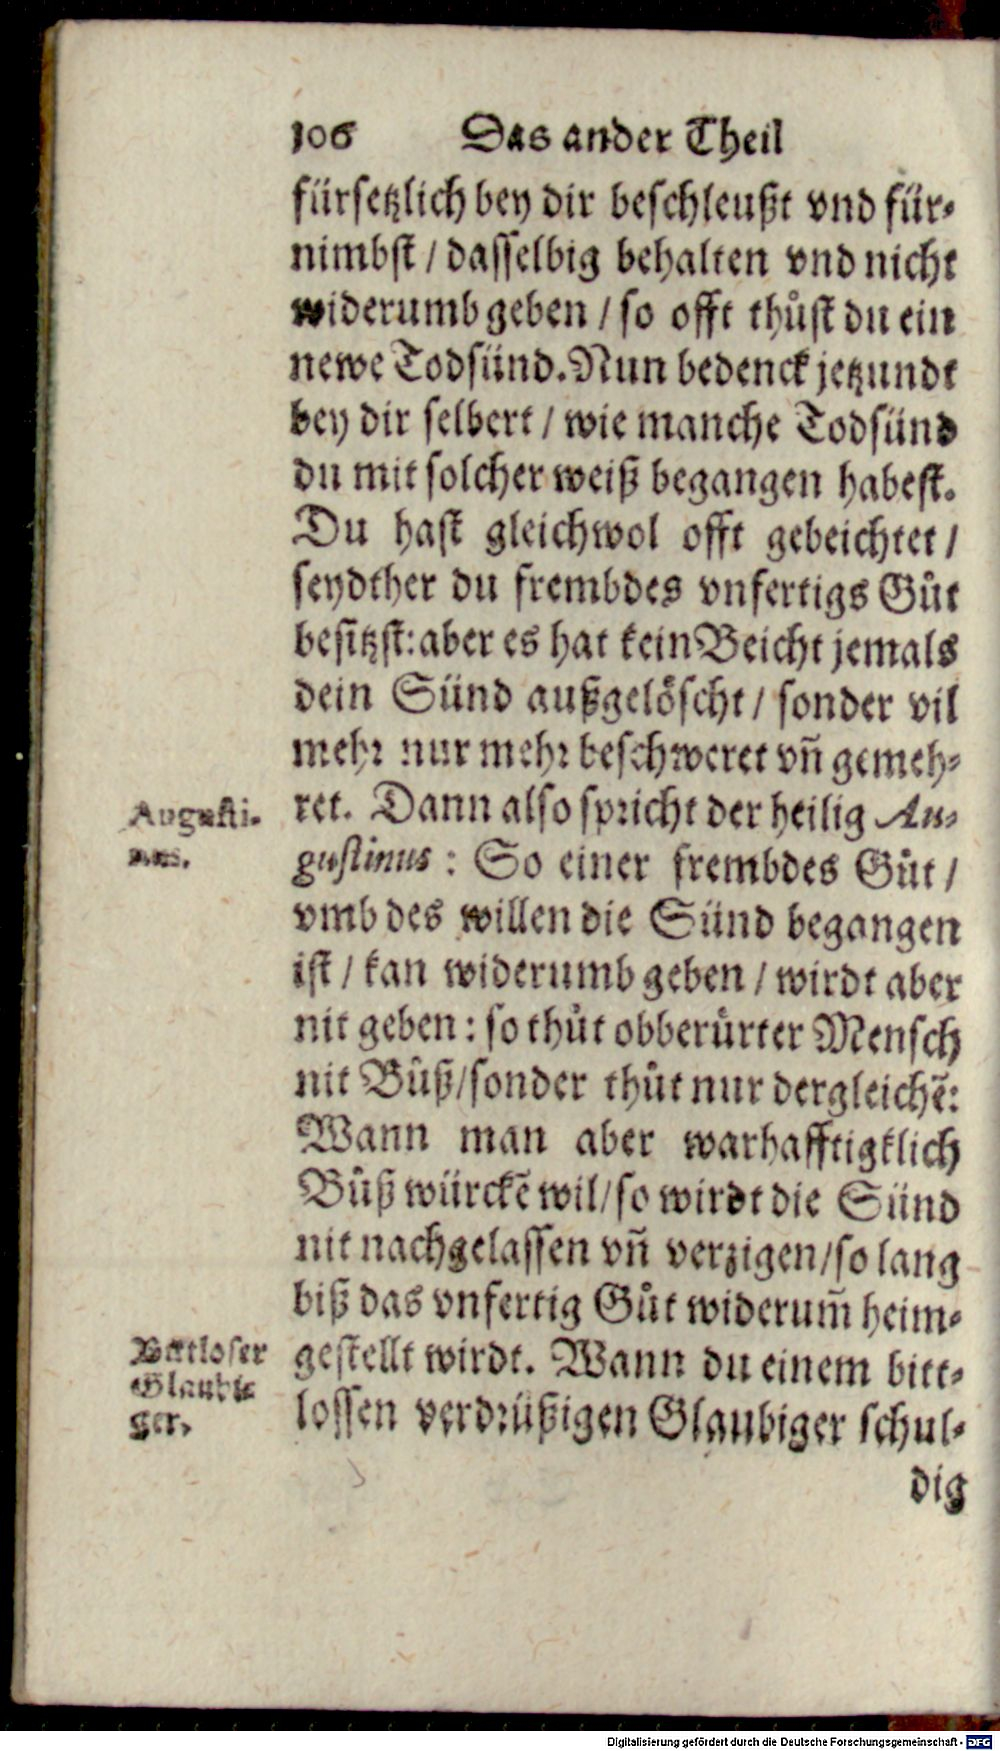 106 Das ander Theil
fürsetzlich bey dir beschleußt vnd für-
nimbst / dasselbig behalten vnd nicht
widerumb geben / so offt thůst du ein
newe Todsünd. Nun bedenck jetzundt
bey dir selbert / wie manche Todsünd
du mit solcher weiß begangen habest.
Du hast gleichwol offt gebeichtet /
seydther du frembdes vnfertigs Gůt
besitzst: aber es hat kein Beicht jemals
dein Sünd außgelöscht / sonder vil
mehr nur mehr beschweret vñ gemeh-
ret. Dann also spricht der heilig Au-
gustinus : So einer frembdes Gůt /
vmb des willen die Sünd begangen
ist / kan widerumb geben / wirdt aber
nit geben : so thůt obberůrter Mensch
nit Bůß/sonder thůt nur dergleichẽ:
Wann man aber warhafftigklich
Bůß würckẽ wil/so wirdt die Sünd
nit nachgelassen vñ verzigen/so lang
biß das vnfertig Gůt widerum̃ heim-
gestellt wirdt. Wann du einem bitt-
lossen verdrüßigen Glaubiger schul-
dig
Augusti-
nus.
Bittloser
Glaubi-
ger.
Digitalisierung gefördert durch die Deutsche Forschungsgemeinschaft - DFG